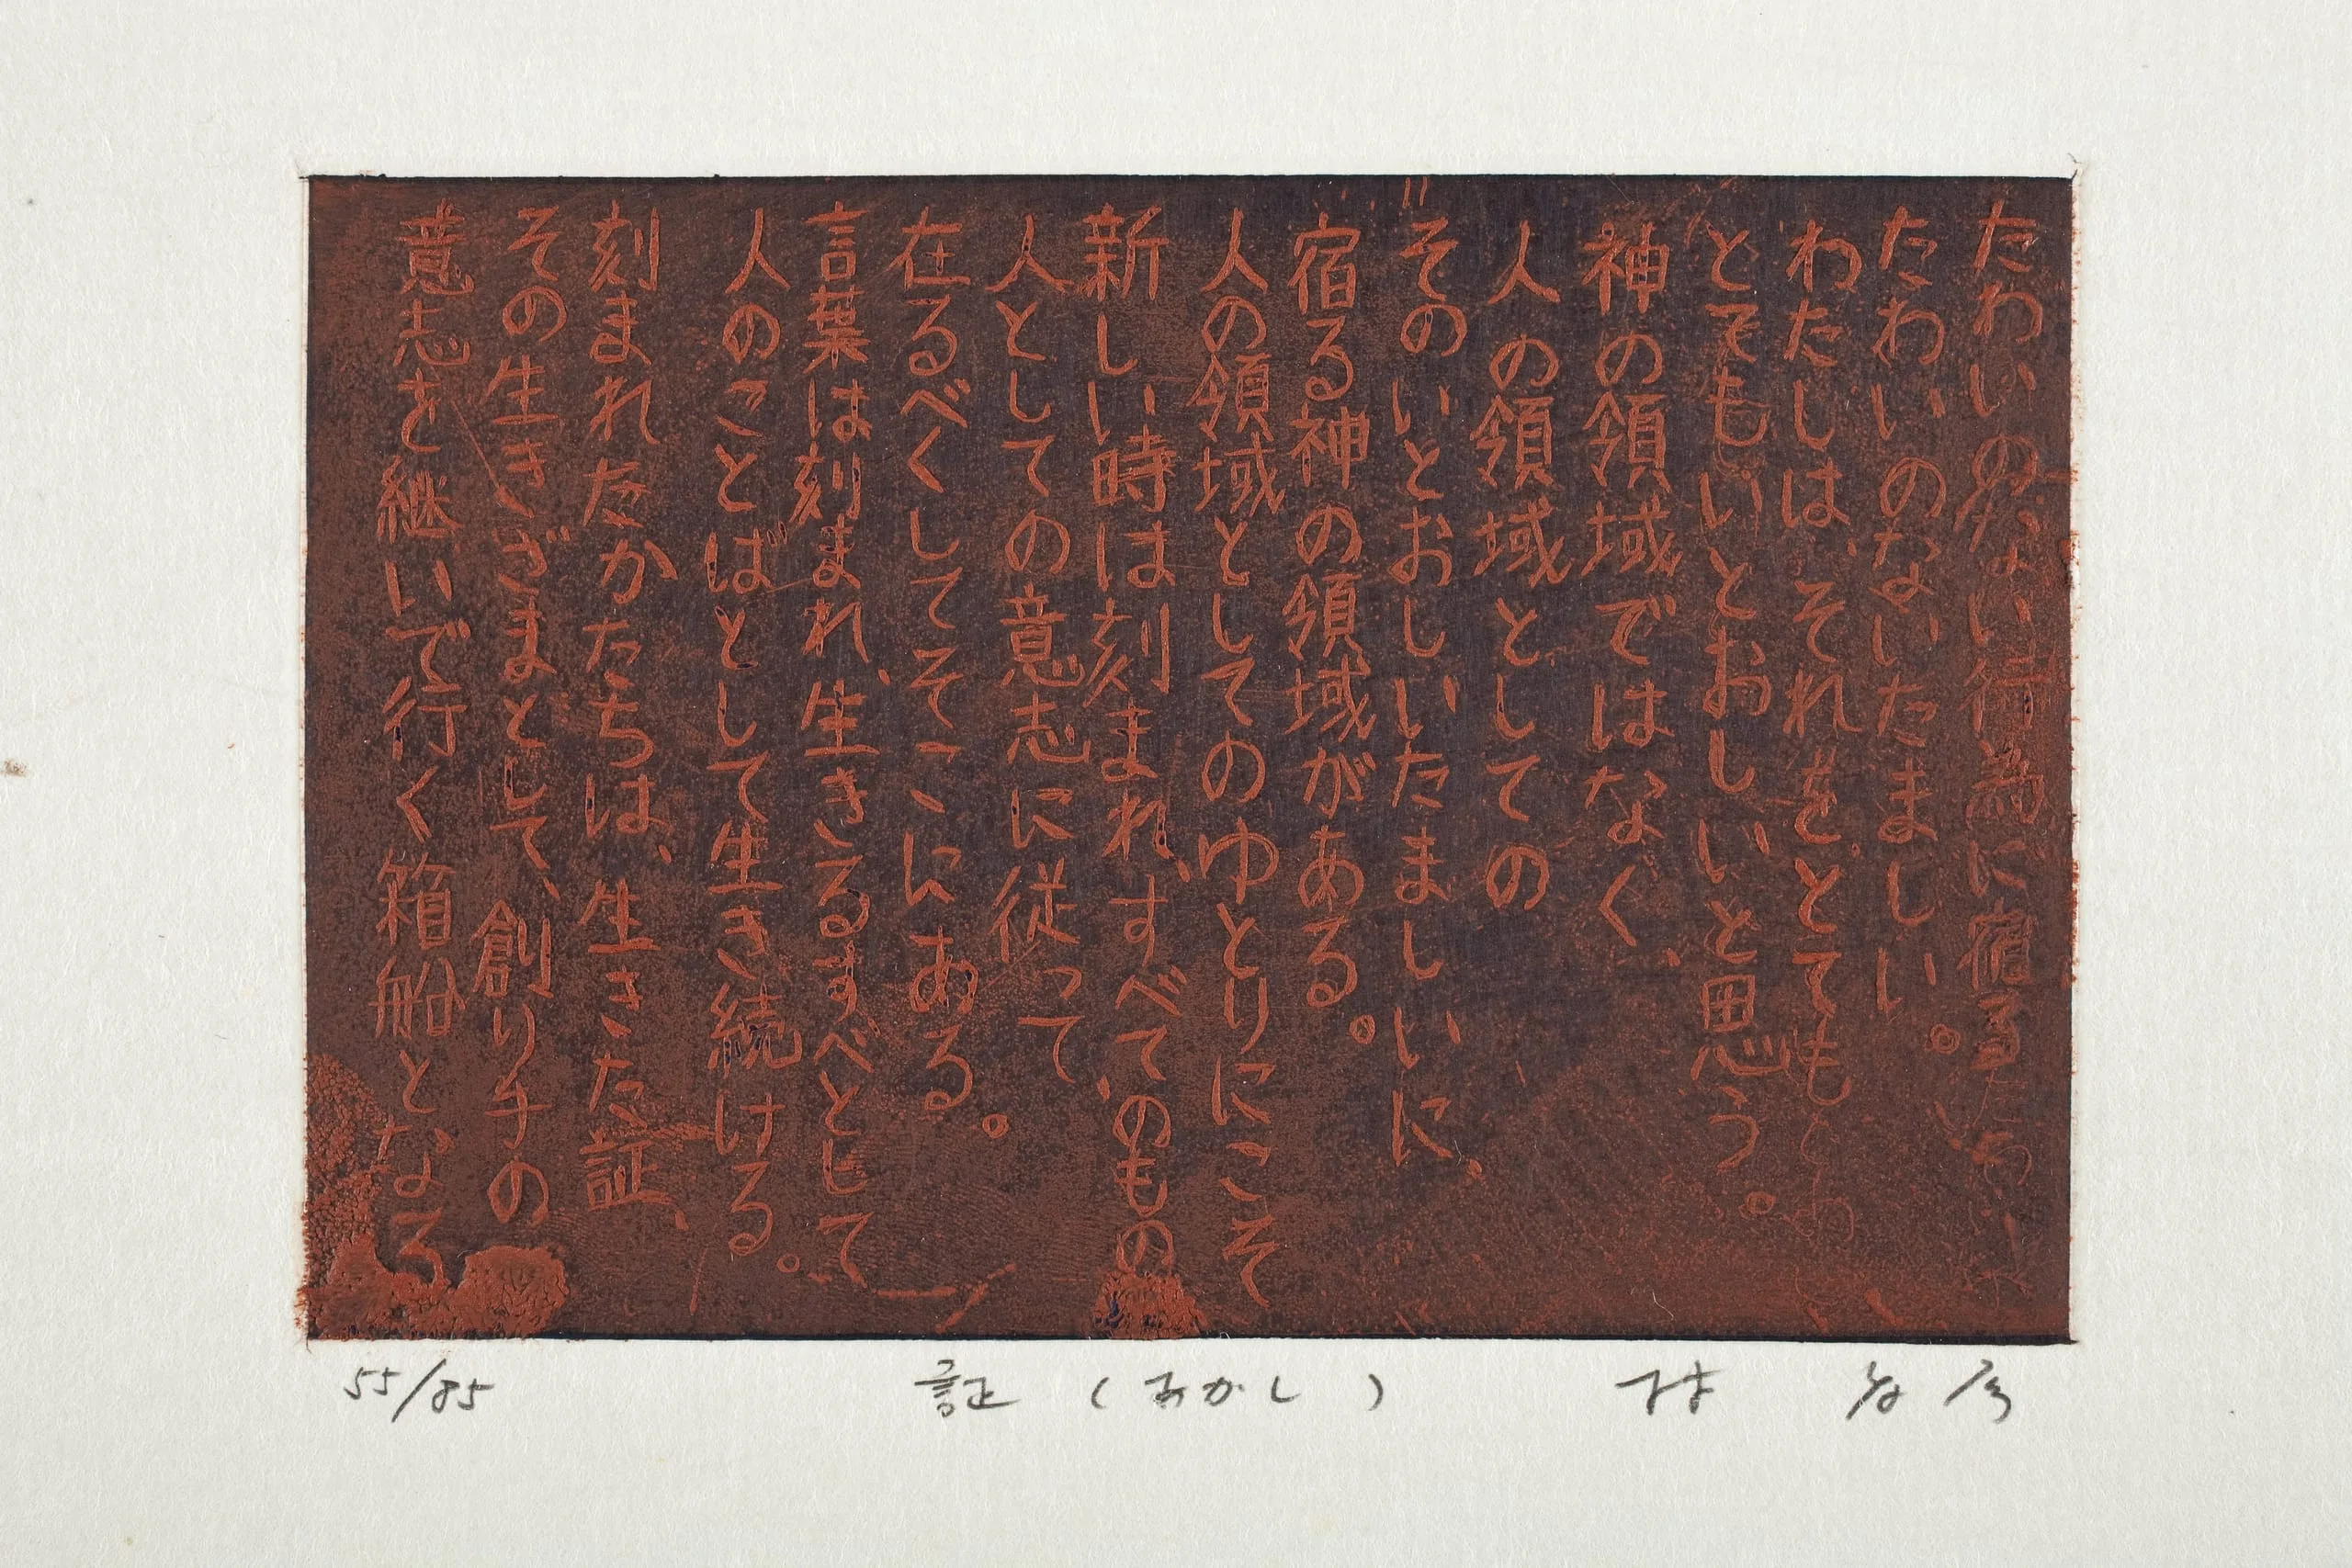 たわいのない行為に宿る
たわいのないたましい。
わたしは、それをとても
とてもいとおしいと思う。
神の領域ではなく、
人の領域としての
そのいとおしいたましいに、
宿る神の領域がある。
人の領域としてのゆとりにこそ
新しい時は刻まれ、すべてのもの
人としての意志に従って
在るべくしてそこにある。
言葉は刻まれ、生きるすべとして
人のことばとして生き続ける。
刻まれたかたちは、生きた証、
その生きざまとして、創り手の
意志を継いで行く箱船となる
55/85
証 (あかし)
林 孝彦